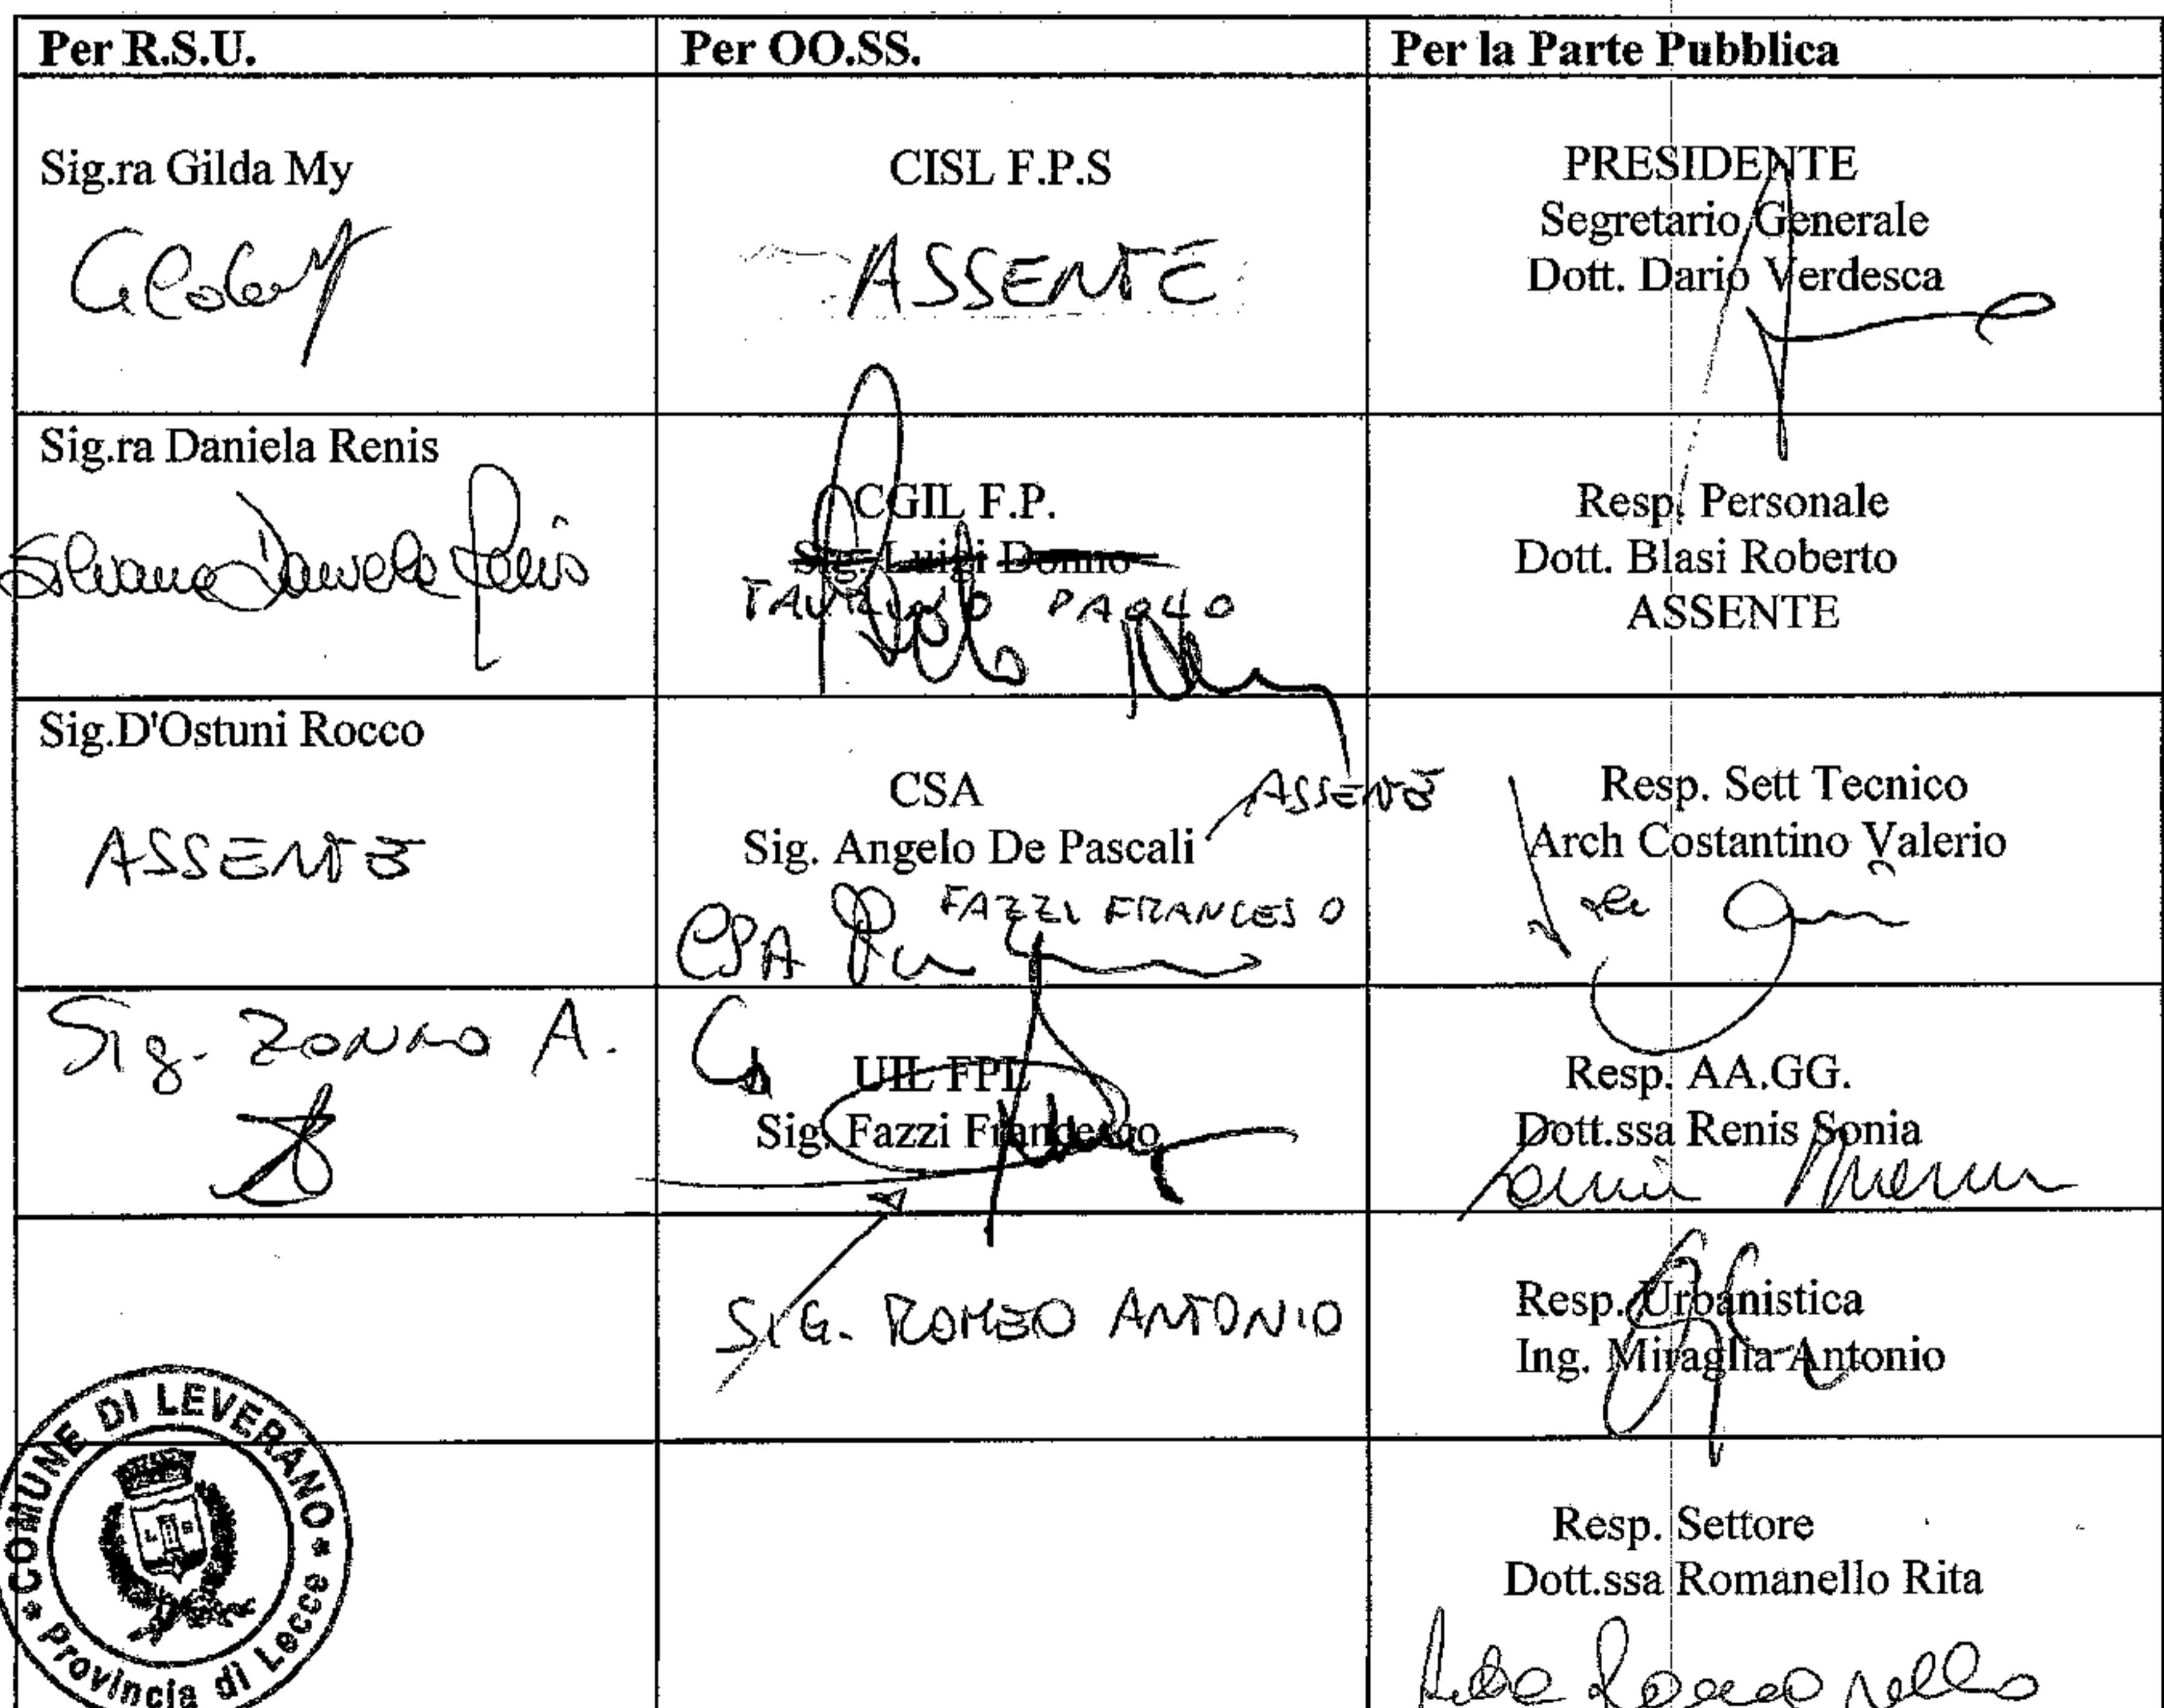 Per R.S.U.
Per OO.SS.
Per la Parte Pubblica
Sig.ra Gilda My
CISL F.P.S
ASSENTE
PRESIDENTE
Segretario Generale
Dott. Dario Verdesca
Sig.ra Daniela Renis
Silvana Daniela Renis
CGIL F.P.
Sig. Luigi Donno
PAOLO
Resp. Personale
Dott. Blasi Roberto
ASSENTE
Sig.D'Ostuni Rocco
ASSENTE
CSA
Sig. Angelo De Pascali
ASSENTE
CSA
FAZZI FRANCESO
Resp. Sett Tecnico
Arch Costantino Valerio
Sig. ZONNO A.
UIL FPL
Sig. Fazzi Francesco
Resp. AA.GG.
Dott.ssa Renis Sonia
SIG. ROMEO ANTONIO
Resp. Urbanistica
Ing. Miraglia Antonio
COMUNE DI LEVERANO
Provincia di Lecce
Resp. Settore
Dott.ssa Romanello Rita
Rita Romanello